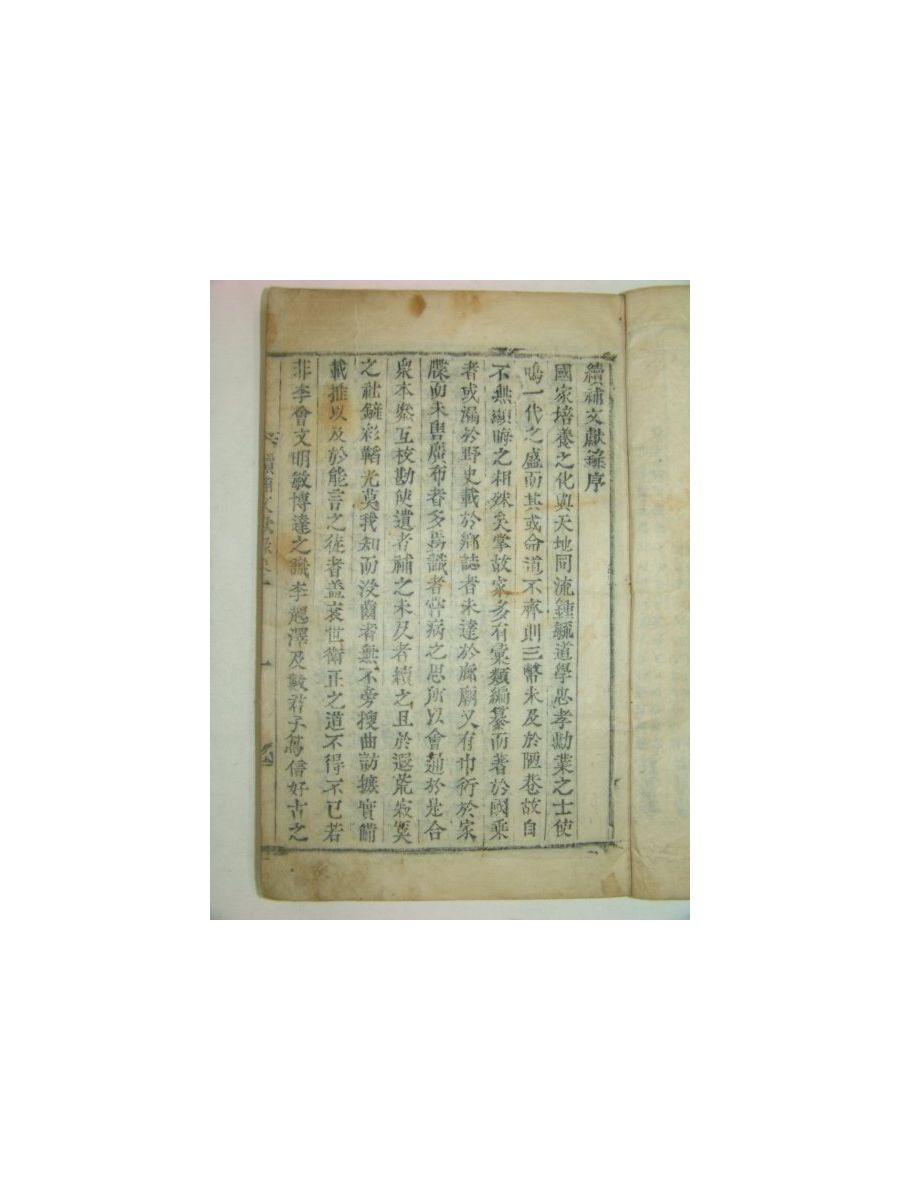 續補文獻錄序
國家培養之化與天地同流鍾毓道學忠孝勳業之士使
鳴一代之盛而其或命道不齊則三幣未及於陋巷故自
不無顯晦之相殊矣掌故家多有彙類編纂而著於國乘
者或漏於野史載於鄕誌者未達於廊廟又有巾衍於家
牒而未曺廣布者多焉識者病之思所以會通於是合
衆本叅互校勘使遺者補之未及者續之且於遐荒寂寞
之社鏟彩韜光莫我知而沒齒者無不旁搜曲訪摭實備
載推以及於能言之徒者盖衰世衛正之道不得不已若
非李會文明敏博達之識李澤及數君子篤信好古之
續補文獻錄序 一